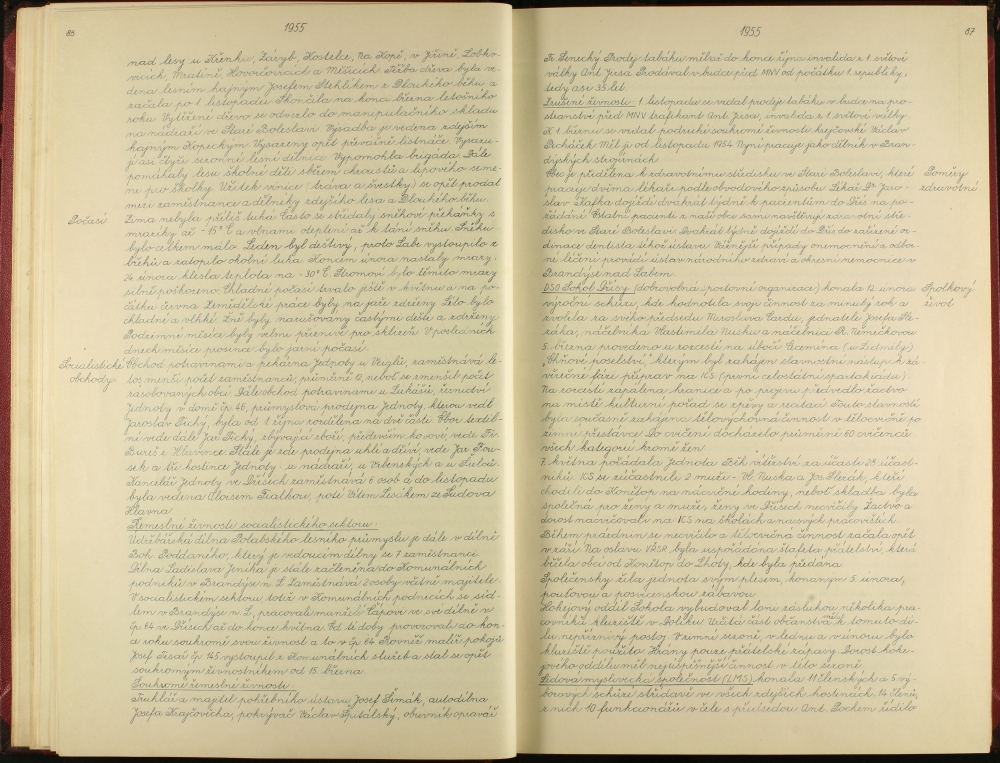 86
1955
nad lesy u Křenku, Záryb, Kostelce, Na Kopě, v Jiřině, Lobko-
vicích, Mratíně, Hovorčovicích a Měšicích. Těžba dřeva byla ve-
dena lesním hajným Josefem Steklíkem z Dlouhého běhu a
začala po 1. listopadu. Skončila na konci března letošního
roku. Vytěžené dřevo se odvezlo do manipulačního skladu
na nádraží ve Staré Boleslavi. Výsadba je vedena zdejším
hajným Kopeckým. Vysazeny opět převážně listnáče. Vysazu-
jí asi čtyři sezonní lesní dělnice. Vypomohla brigáda. Dále
pomáhaly lesu školní děti sběrem chroustů a lipového seme-
ne pro školky. Užitek vinice (tráva a švestky) se opět prodal
mezi zaměstnance a dělníky zdejšího lesa a Dlouhého běhu.
Počasí
Zima nebyla příliš tuhá. Často se střídaly sněhové přeháňky s
mrazíky až -15°C a vlnami oteplení až k tání sněhu. Sněhu
bylo celkem málo. Leden byl deštivý, proto Labe vystoupilo z
břehů a zatopilo okolní luka. Koncem února nastaly mrazy.
24. února klesla teplota na -30°C. Stromoví bylo těmito mrazy
silně poškozeno. Chladné počasí trvalo ještě v květnu a na po-
čátku června. Zemědělské práce byly na jaře zdrženy. Léto bylo
chladné a vlhké. Žně byly narušovány častými dešti a zdrženy.
Podzimní měsíce byly velmi příznivé pro sklizeň. V posledních
dnech měsíce prosince bylo jarní počasí.
Socialistické
obchody
Obchod potravinami a pekárna Jednoty u Venglů, zaměstnává le-
tos menší počet zaměstnanců, průměrně 12, neboť se zmenšil počet
zásobovaných obcí. Dále obchod potravinami u Lukášů, řeznictví
Jednoty v domě čp. 46, průmyslová prodejna Jednoty, kterou vedl
Jaroslav Tichý, byla od 1. října rozdělena na dvě části. Obor textil-
ní vede dále Jar. Tichý, zbývající zboží, především kovové, vede Fr.
Bureš z Hlavence. Stále je zde prodejna uhlí a dříví, vede Jar. Fou-
sek a tři hostince Jednoty: u nádraží, u Vrbenských a u Šulců.
Kancelář Jednoty ve Dřísech zaměstnává 6 osob a do listopadu
byla vedena Aloisem Fialkou, poté Vítem Lisákem ze Sudova
Hlavna.
Řemeslné živnosti socialistického sektoru:
Údržbářská dílna Polabského lesního průmyslu je dále v dílně
Boh. Poddaného, který je vedoucím dílny se 7 zaměstnanci.
Dílna Ladislava Jeníka je stále začleněna do Komunálních
podniků v Brandýse n. L. Zaměstnává 2 osoby včetně majitele.
V socialistickém sektoru, totéž v Komunálních podnicích se síd-
lem v Brandýse n. L., pracovali manželé Čápovi ve své dílně v
čp. 64 ve Dřísech až do konce května. Od té doby provozovali do kon-
ce roku soukromě svou živnost a to v čp. 64. Rovněž malíř pokojů
Josef Tesař čp. 145 vystoupil z Komunálních služeb a stal se opět
soukromým živnostníkem od 15. března.
Soukromé řemeslné živnosti:
Truhlář a majitel pohřebního ústavu Josef Šimák, autodílna
Josefa Krajčoviče, pokrývač Václav Špitálský, obuvník opravář
1955
87
Fr. Senecký. Prodej tabáku měl až do konce října invalida z 1. světové
války Ant. Jersa. Prodával v budce před MNV od počátku 1. republiky,
tedy asi 35 let.
Zrušené živnosti: 1. listopadu se vzdal prodeje tabáku v budce na pro-
stranství před MNV trafikant Ant. Jersa, invalida z 1. světové války.
K 1. březnu se vzdal podruhé soukromé živnosti krejčovské Václav
Pecháček. Měl ji od listopadu 1954. Nyní pracuje jako dělník v Bran-
dýských strojírnách.
Poměry
zdravotní
Obec je přidělena k zdravotnímu středisku ve Staré Boleslavi, které
pracuje dvěma lékaři podle obvodového způsobu. Lékař Dr. Jaro-
slav Štafka dojíždí dvakrát týdně k pacientům do Dřís na po-
žádání. Ostatní pacienti z naší obce sami navštěvují zdravotní stře-
disko ve Staré Boleslavi. Dvakrát týdně dojíždí do Dřís do zařízené or-
dinace dentista téhož ústavu. Vážnější případy onemocnění a odbor-
né léčení provádí ústav národního zdraví a okresní nemocnice v
Brandýse nad Labem.
Spolkový
život
DSO Sokol Dřísy (dobrovolná sportovní organizace) konala 12. února
výroční schůzi, kde hodnotila svoji činnost za minulý rok a
zvolila za svého předsedu Miroslava Pardu, jednatele Josefa Sle-
záka, náčelníka Vlastimila Nuska a náčelnici R. Němečkovou.
5. března provedeno v rozcestí na úbočí Cecemína (u Lidmily)
"Ohňové poselství", kterým byl zahájen slavnostní nástup k zá-
věrečné fázi příprav na 1.CS (první celostátní spartakiádu).
Na rozcestí zapálena hranice a po projevu předvedlo žactvo
na místě kulturní pořad se zpěvy a recitací. Touto slavností
byla současně zahájena tělovýchovná činnost v tělocvičně po
zimní přestávce. Do cvičení docházelo průměrně 60 cvičenců
všech kategorií kromě žen.
7. května pořádala Jednota Běh vítězství za účasti 28 účast-
níků. 1.CS se zúčastnili 2 muži - Vl. Nuska a Jos. Slezák, kteří
chodili do Konětop na nácvičné hodiny, neboť skladba byla
společná pro ženy a muže, ženy ve Dřísech necvičily. Žactvo a
dorost nacvičovaly na 1.CS na školách a na svých pracovištích.
Během prázdnin se necvičilo a tělocvičná činnost začala opět
v září. Na oslavu VŘSR byla uspořádána štafeta přátelství, která
běžela obcí od Konětop do Lhoty, kde byla předána.
Společensky žila jednota svým plesem, konaným 5. února,
pouťovou a posvícenskou zábavou.
Hokejový oddíl Sokola vybudoval loni zásluhou několika pra-
covníků kluziště v Dolíku. Určitá část občanstva k tomuto dí-
lu nepříznivý postoj. V zimní sezóně, v lednu a v únoru bylo
kluziště použito. Hrány pouze přátelské zápasy. Dorost hoke-
jového oddílu měl nejúspěšnější činnost v této sezóně.
Lidová myslivecká společnost (LMS) konala 11 členských a 5 vý-
borových schůzí střídavě ve všech zdejších hostincích. 14 členů,
z nich 10 funkcionářů v čele s předsedou Ant. Pochem řídilo